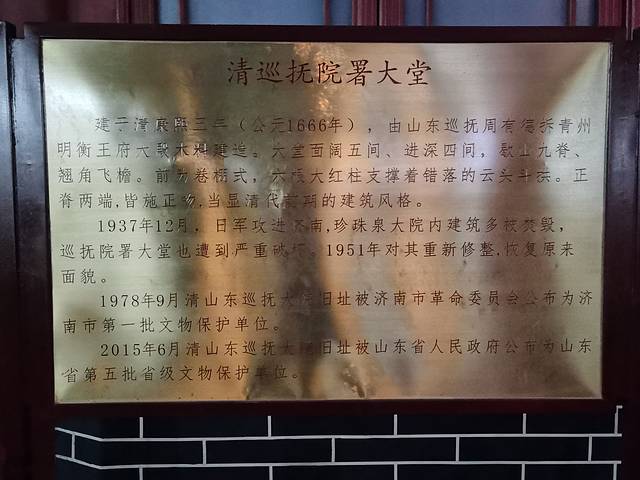 清巡抚院署大堂
建于清康熙三年（公元1666年），由山东巡抚周有德拆青州
明衡王府大殿木料建造。大堂面阔五间、进深四间，歇山九脊、
翘角飞檐。前为卷棚式，六根大红柱支撑着错落的云头斗拱。正
脊两端，皆施正吻，当显清代前期的建筑风格。
1937年12月，日军攻进济南，珍珠泉大院内建筑多被焚毁，
巡抚院署大堂也遭到严重破坏。1951年对其重新修整，恢复原来
面貌。
1978年9月清山东巡抚大院旧址被济南市革命委员会公布为济
南市第一批文物保护单位。
2015年6月清山东巡抚大院旧址被山东省人民政府公布为山东
省第五批省级文物保护单位。